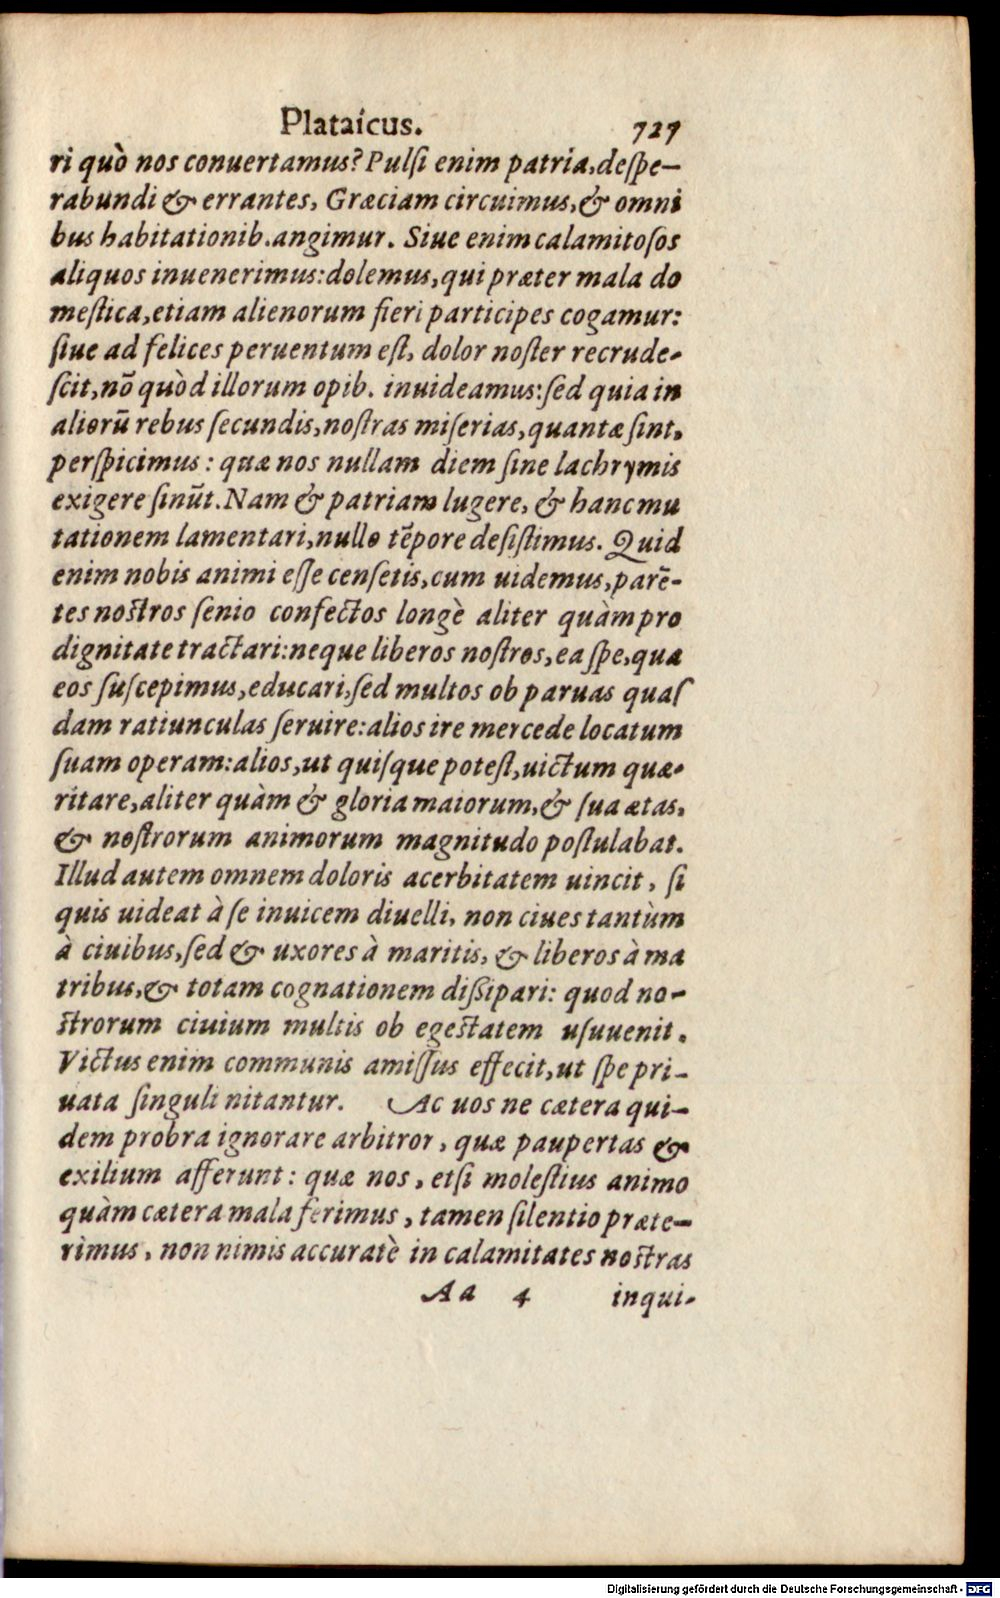 Plataicus. 727
ri quò nos conuertamus? Pulſi enim patria, deſpe-
rabundi & errantes, Græciam circuimus, & omni
bus habitationib. angimur. Siue enim calamitoſos
aliquos inuenerimus: dolemus, qui præter mala do
meſtica, etiam alienorum fieri participes cogamur:
ſiue ad felices peruentum eſt, dolor noſter recrude-
ſcit, nõ quòd illorum opib. inuideamus: ſed quia in
aliorũ rebus ſecundis, noſtras miſerias, quantæ ſint,
perſpicimus: quæ nos nullam diem ſine lachrymis
exigere ſinũt. Nam & patriam lugere, & hanc mu
tationem lamentari, nullo tẽpore deſiſtimus. Quid
enim nobis animi eſſe cenſetis, cum uidemus, parẽ-
tes noſtros ſenio confectos longè aliter quàm pro
dignitate tractari: neque liberos noſtros, ea ſpe, qua
eos ſuſcepimus, educari, ſed multos ob paruas quaſ
dam ratiunculas ſeruire: alios ire mercede locatum
ſuam operam: alios, ut quiſque poteſt, uictum quæ-
ritare, aliter quàm & gloria maiorum, & ſua ætas,
& noſtrorum animorum magnitudo poſtulabat.
Illud autem omnem doloris acerbitatem uincit, ſi
quis uideat à ſe inuicem diuelli, non ciues tantùm
à ciuibus, ſed & uxores à maritis, & liberos à ma
tribus, & totam cognationem diſſipari: quod no-
ſtrorum ciuium multis ob egeſtatem uſuuenit.
Victus enim communis amiſſus effecit, ut ſpe pri-
uata ſinguli nitantur. Ac uos ne cætera qui-
dem probra ignorare arbitror, quæ paupertas &
exilium afferunt: quæ nos, etſi moleſtius animo
quàm cætera mala ferimus, tamen ſilentio præte-
rimus, non nimis accuratè in calamitates noſtras
Aa 4 inqui-
Digitalisierung gefördert durch die Deutsche Forschungsgemeinschaft - DFG